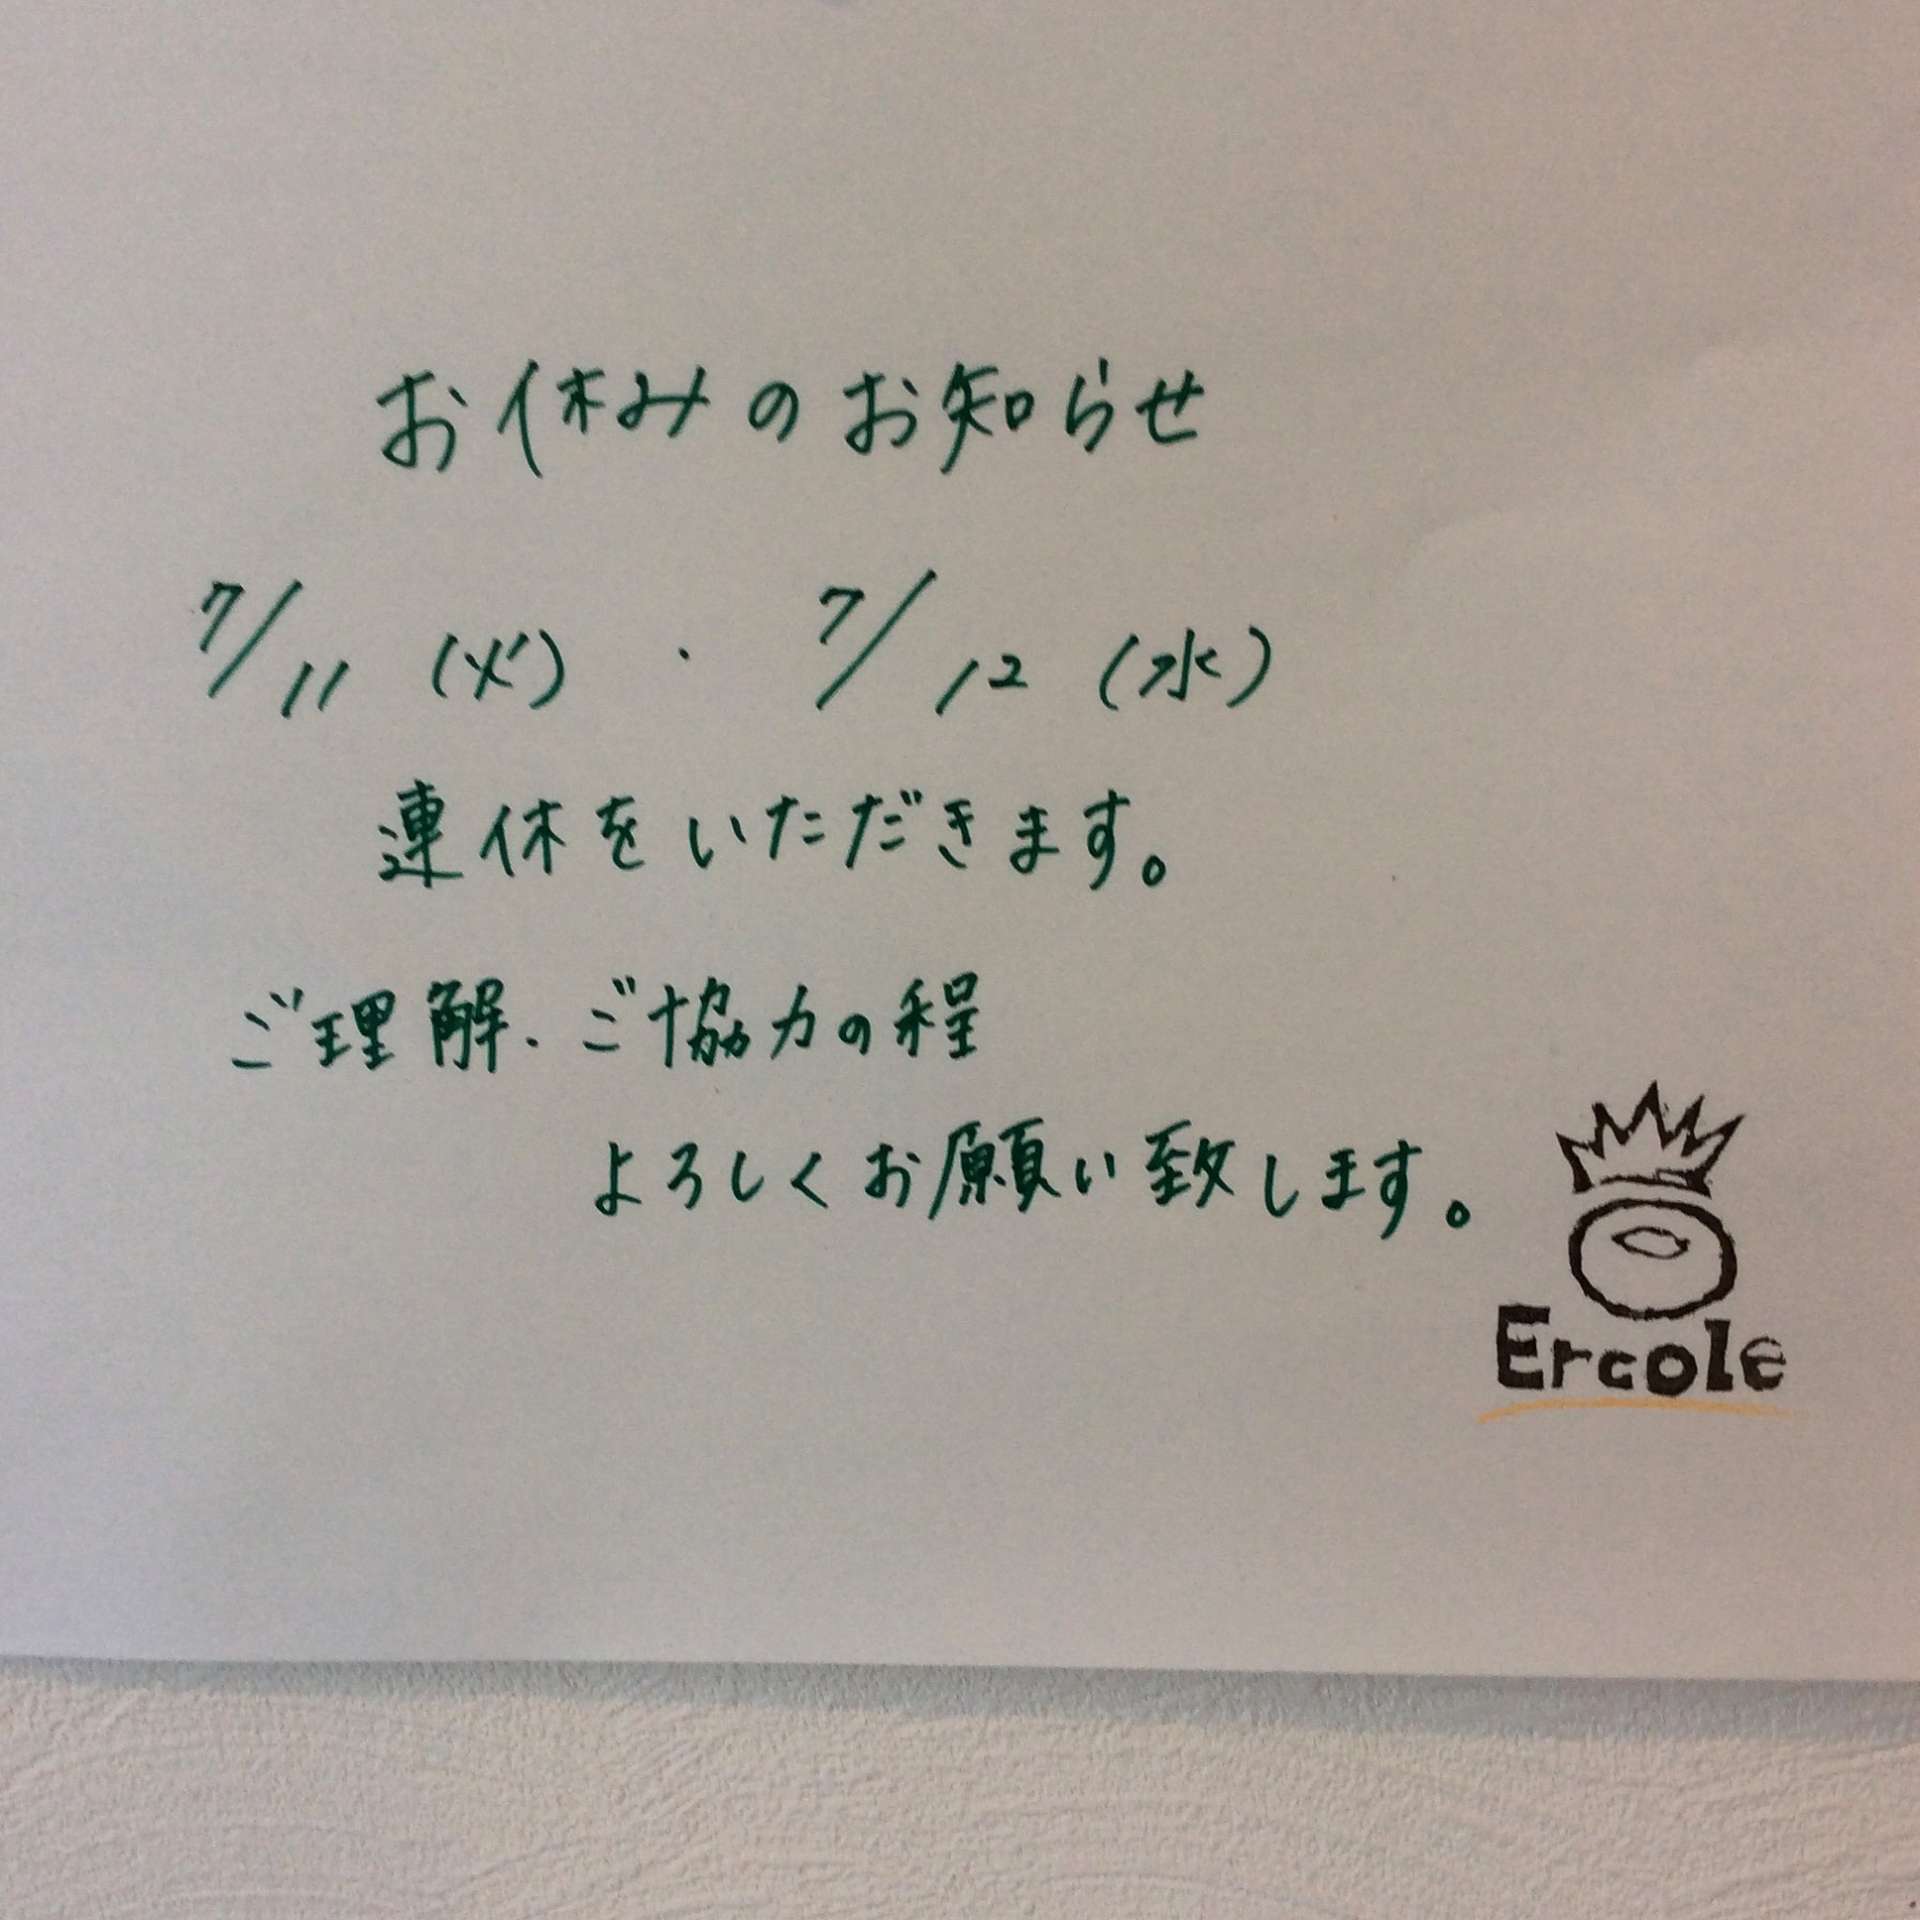 お休みのお知らせ
7/11(火)・7/12(水)
連休をいただきます。
ご理解・ご協力の程
よろしくお願い致します。
Ercole